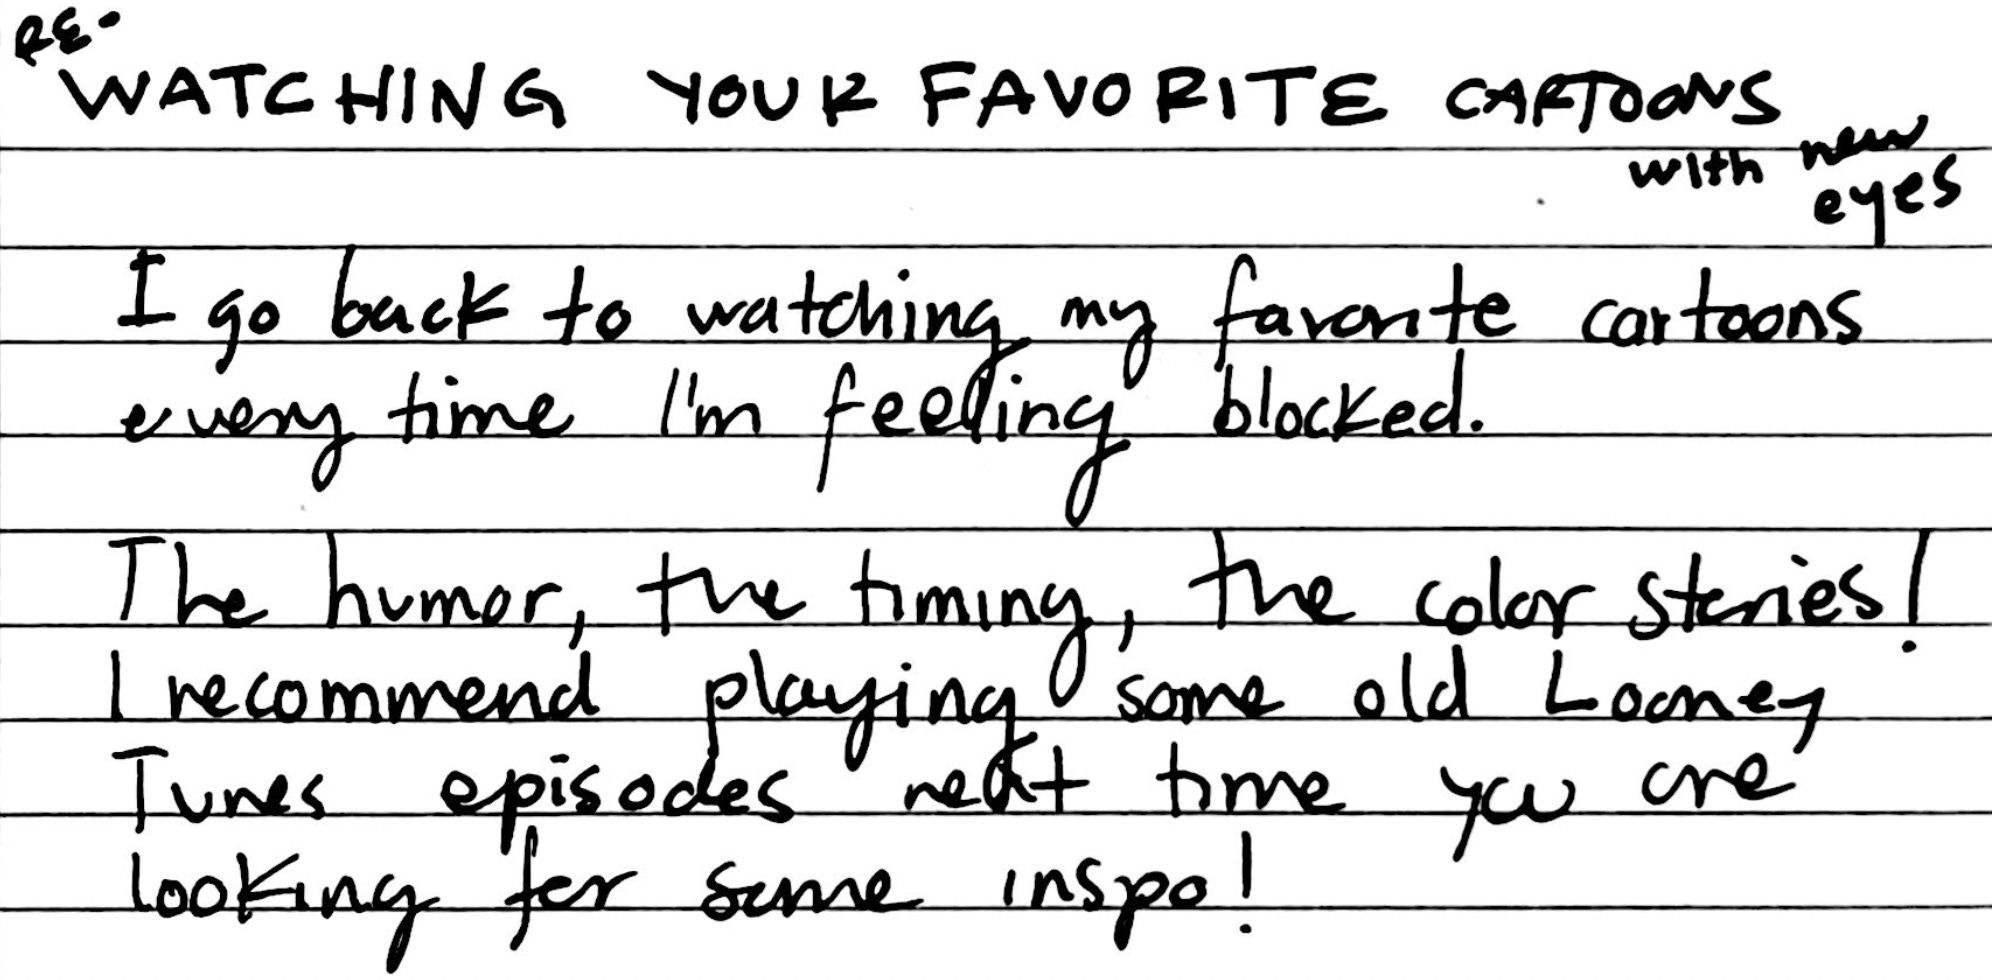 RE-WATCHING YOUR FAVORITE CARTOONS
with new eyes
I go back to watching my favorite cartoons
every time I'm feeling blocked.
The humor, the timing, the color stories!
I recommend playing some old Looney
Tunes episodes next time you are
looking for some inspo!